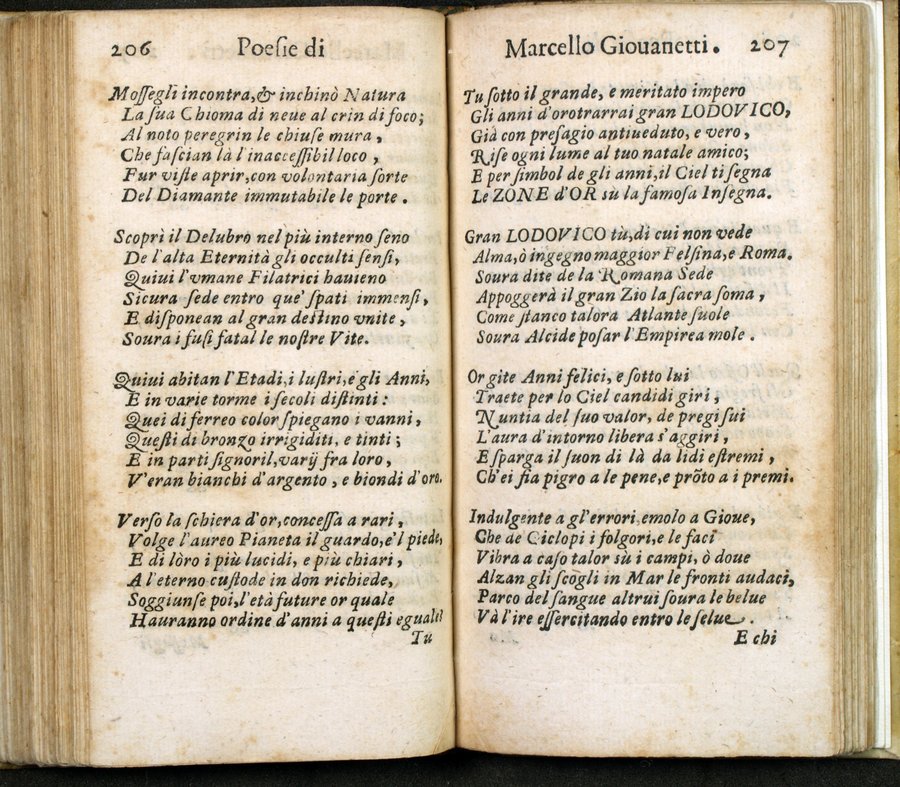 206 Poeſie di
Moſſegli incontra,& inchinò Natura
La ſua Chioma di neue al crin di foco;
Al noto peregrin le chiuſe mura,
Che faſcian là l'inacceſſibil loco,
Fur viſte aprir,con volontaria ſorte
Del Diamante immutabile le porte.
Scoprì il Delubro nel più interno ſeno
De l'alta Eternità gli occulti ſenſi,
Quiui l'vmane Filatrici hauieno
Sicura ſede entro que' ſpati immenſi,
E diſponean al gran deſtino vnite,
Soura i fuſi fatal le noſtre Vite.
Quiui abitan l'Etadi,i luſtri,e gli Anni,
E in varie torme i ſecoli diſtinti:
Quei di ferreo color ſpiegano i vanni,
Queſti di bronzo irrigiditi, e tinti;
E in parti ſignoril,varij fra loro,
V'eran bianchi d'argento, e biondi d'oro.
Verſo la ſchiera d'or,conceſſa a rari,
Volge l'aureo Pianeta il guardo,e'l piede,
E di lòro i più lucidi, e più chiari,
A l'eterno cuſtode in don richiede,
Soggiunſe poi,l'età future or quale
Hauranno ordine d'anni a queſti eguale?
Tu
Marcello Giouanetti. 207
Tu ſotto il grande, e meritato impero
Gli anni d'orotrarrai gran LODOVICO,
Già con preſagio antiueduto, e vero,
Riſe ogni lume al tuo natale amico;
E per ſimbol de gli anni,il Ciel ti ſegna
Le ZONE d'OR sù la famoſa Inſegna.
Gran LODOVICO tù,di cui non vede
Alma,ò ingegno maggior Felſina, e Roma.
Soura dite de la Romana Sede
Appoggerà il gran Zio la ſacra ſoma,
Come ſtanco talora Atlante ſuole
Soura Alcide poſar l'Empirea mole.
Or gite Anni felici, e ſotto lui
Traete per lo Ciel candidi giri,
Nuntia del ſuo valor, de pregi ſui
L'aura d'intorno libera s'aggiri,
E ſparga il ſuon di là da lidi eſtremi,
Ch'ei ſia pigro a le pene,e prõto a i premi.
Indulgente a gl'errori emolo a Gioue,
Che de Ciclopi i folgori,e le faci
Vibra a caſo talor sù i campi, ò doue
Alzan gli ſcogli in Mar le fronti audaci,
Parco del ſangue altrui ſoura le belue
Và l'ire eſſercitando entro le ſelue.
E chi